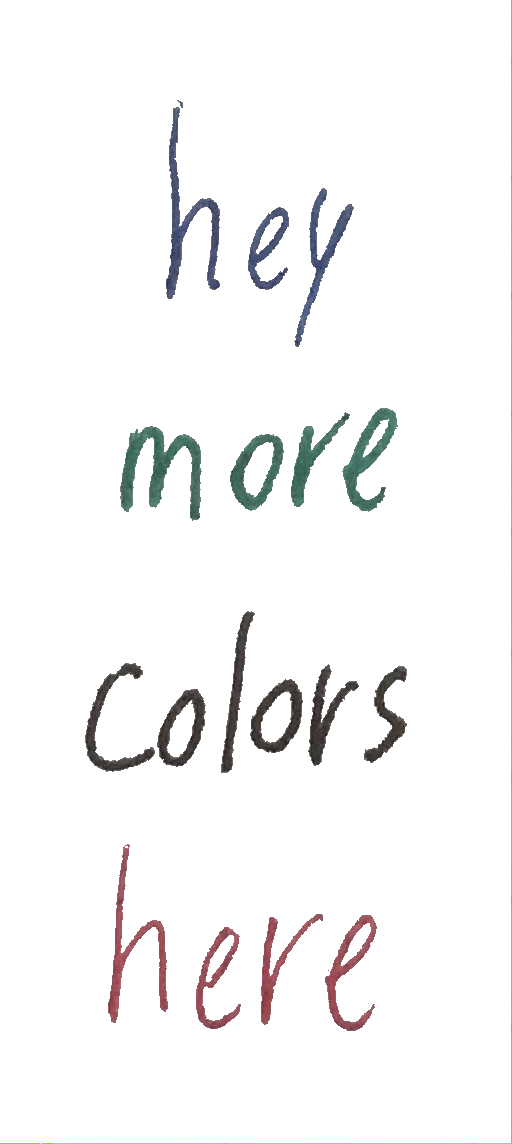 hey
more
colors
here